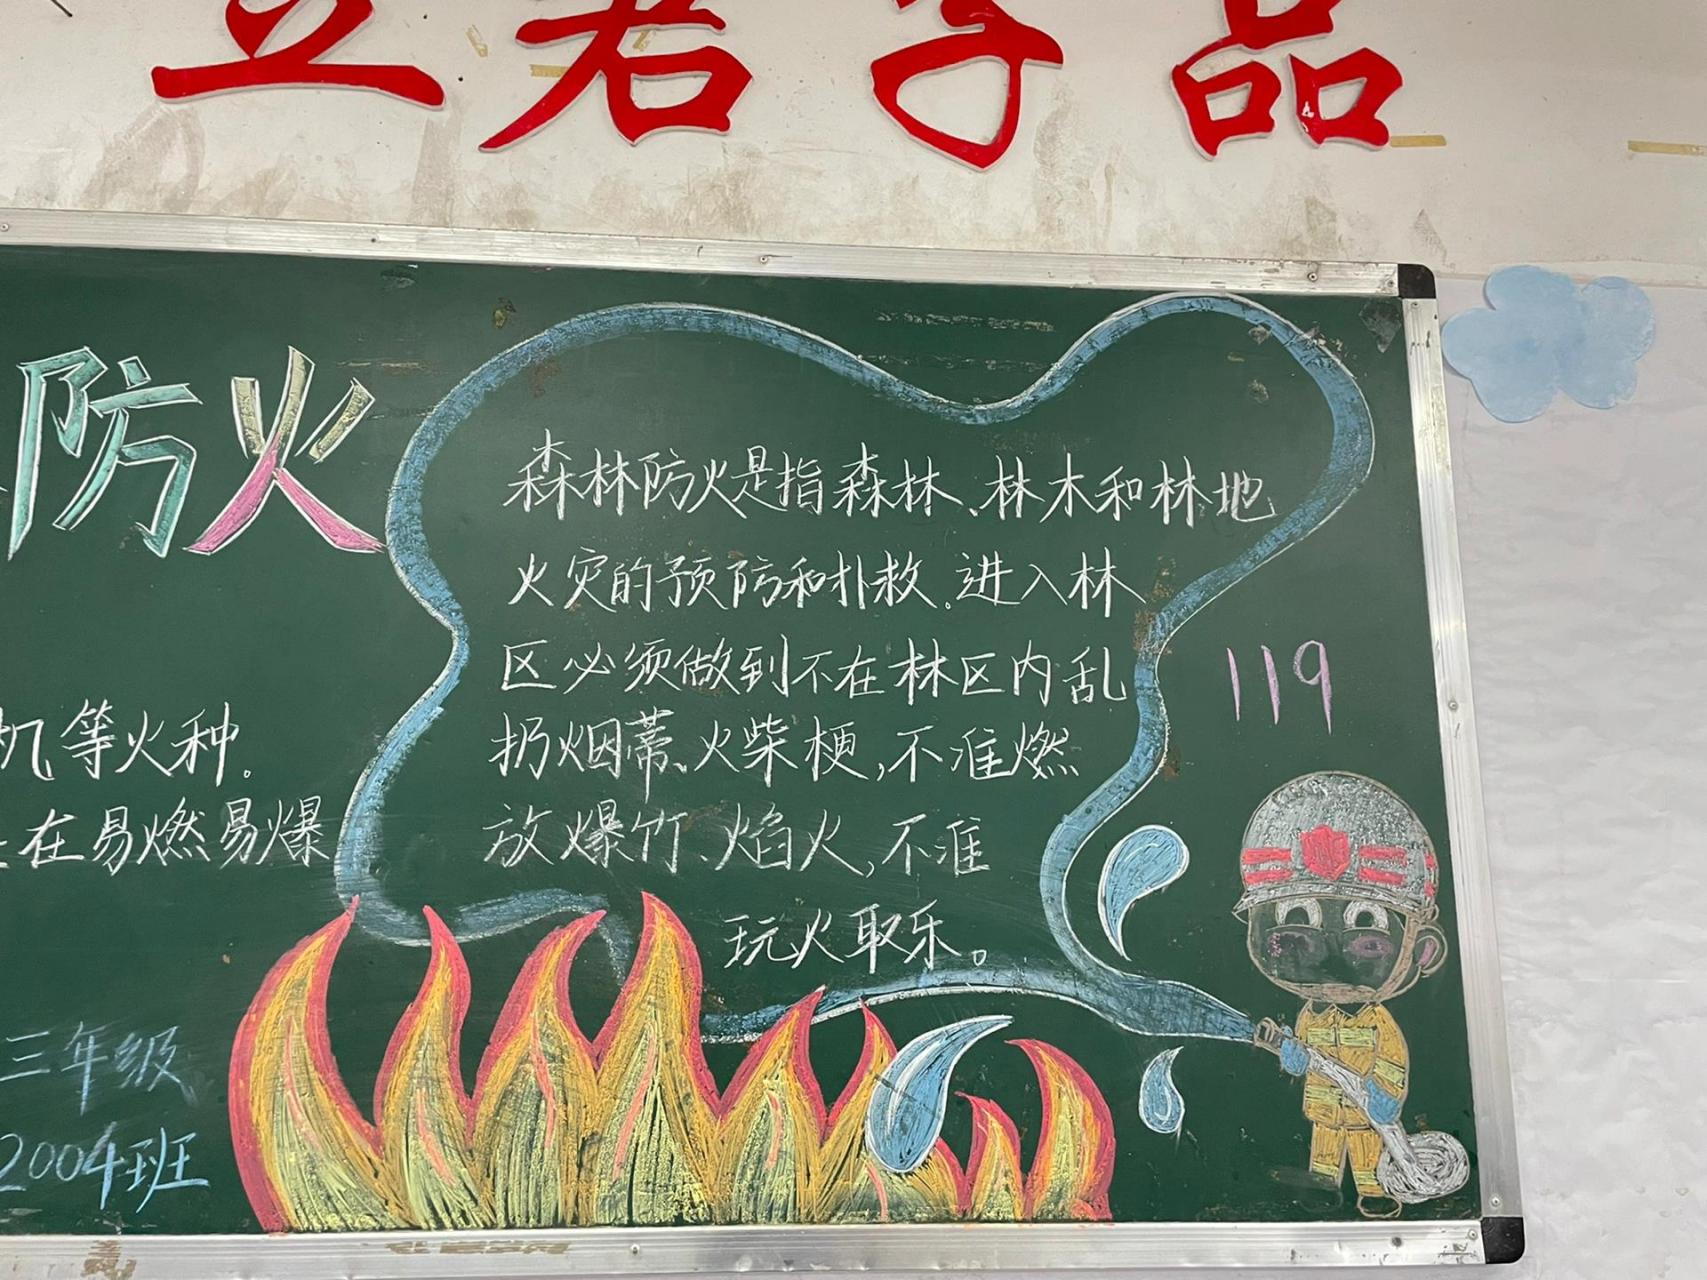 立君子品
防火
森林防火是指森林、林木和林地
火灾的预防和扑救.进入林
区必须做到不在林区内乱
扔烟蒂、火柴梗,不准燃
放爆竹、焰火,不准
玩火取乐。
119
机等火种.
在易燃易爆
三年级
2004班